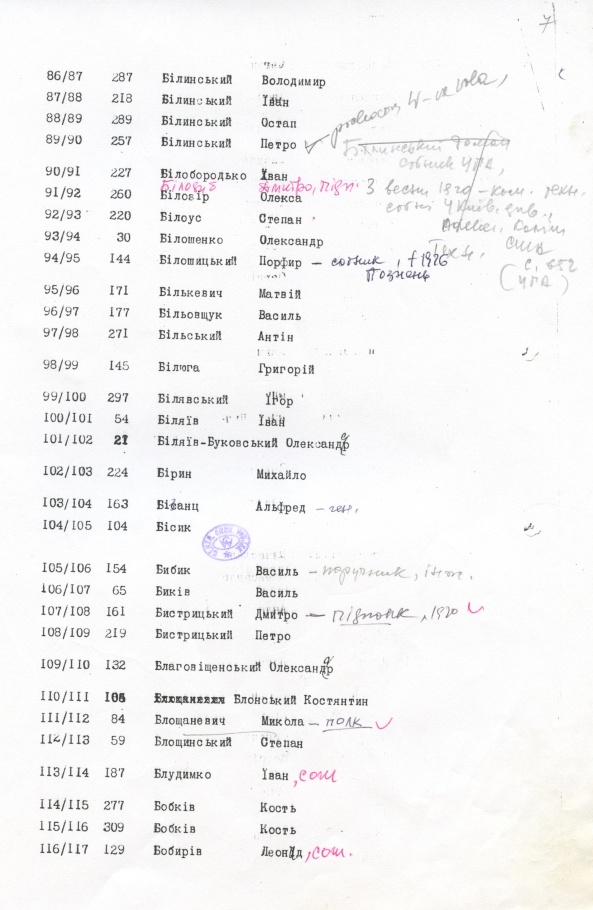 7
86/87 287 Білинський Володимир
87/88 218 Білинський Іван
88/89 289 Білинський Остап
89/90 257 Білинський Петро
сотник УПА,
90/91 227 Білобородько Іван
Дмитро, підп.
91/92 260 Біловір Олекса
92/93 220 Білоус Степан
93/94 30 Білошенко Олександр
94/95 144 Білошицький Порфир – сотник, † 1926
Познань
США
с. 852
(УПА)
95/96 171 Бількевич Матвій
96/97 177 Більовщук Василь
97/98 271 Більський Антін
98/99 145 Білюга Григорій
99/100 297 Білявський Ігор
100/101 54 Біляїв Іван
101/102 21 Біляїв-Буковський Олександр
102/103 224 Бірин Михайло
103/104 163 Бізанц Альфред – ген.
104/105 104 Бісик
105/106 154 Бибик Василь – поручник, інж.
106/107 65 Биків Василь
107/108 161 Бистрицький Дмитро – підполк, 1920
108/109 219 Бистрицький Петро
109/110 132 Благовіщенський Олександр
110/111 Блонський Костянтин
111/112 84 Блощаневич Микола – полк
112/113 59 Блощинський Степан
113/114 187 Блудимко Іван, сот
114/115 277 Бобків Кость
115/116 309 Бобків Кость
116/117 129 Бобирів Леонід, сот.